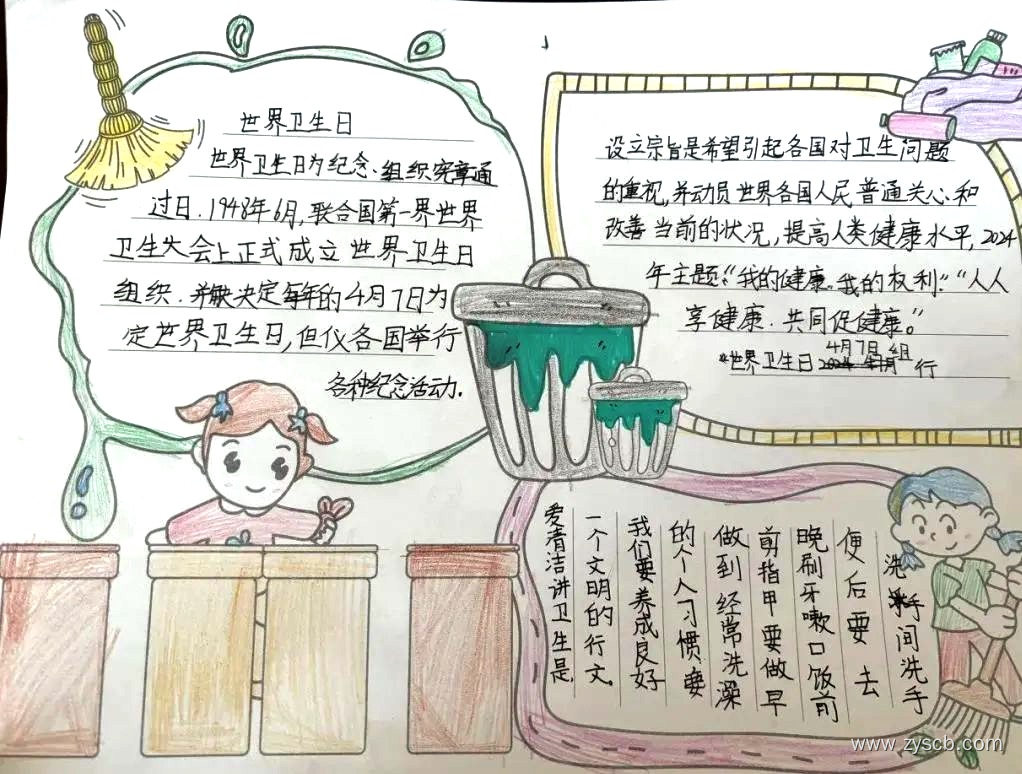 世界卫生日
世界卫生日为纪念.组织宪章通
过日.1948年6月,联合国第一界世界
卫生大会上正式成立世界卫生日
组织.并决定每年的4月7日为
定世界卫生日,但仪各国举行
各种纪念活动.
设立宗旨是希望引起各国对卫生问题
的重视,并动员世界各国人民普通关心和
改善当前的状况,提高人类健康水平,2024
年主题:“我的健康.我的权利”:“人人
享健康.共同促健康。”
“世界卫生日4月7日组行
爱清洁讲卫生是
一个文明的行文.
我们要养成良好
的个人习惯.要
做到经常洗澡
剪指甲要做早
晚刷牙嗽口饭前
便后要去
洗手间洗手
www.zyscb.com